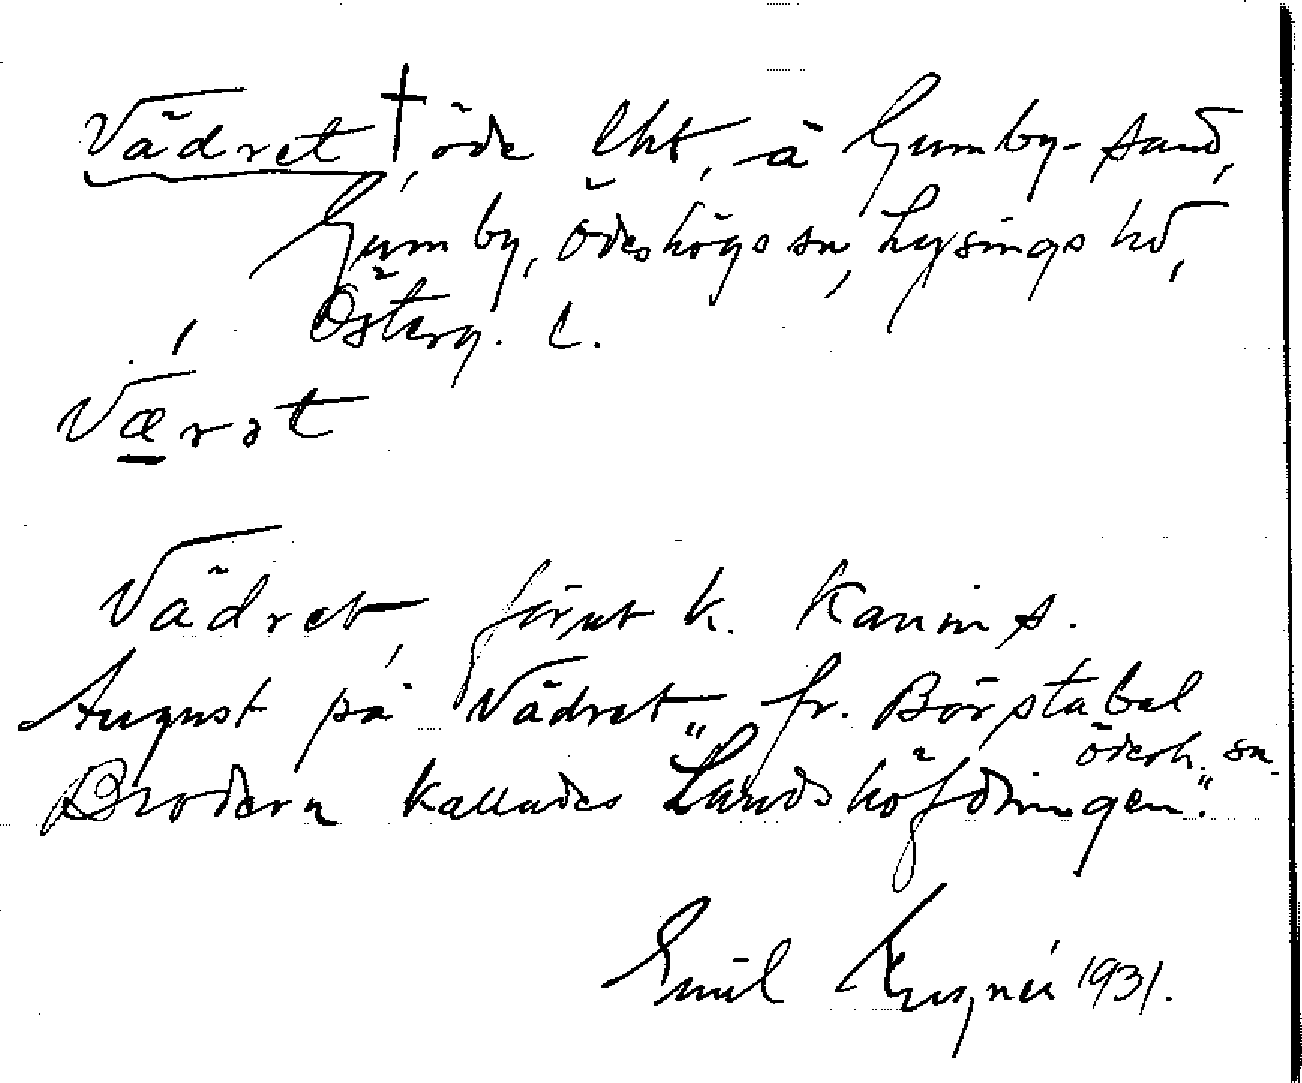 Vädret †, öde lht, å Gumby-sand,
Gumby, Ödeshögs sn, Lysings hd,
Österg. l.
Værət
Vädret, förut k. Kanins.
August på Vädret, fr. Börstabel
Ödesh. sn.
Brodern kallades "Landshöfdingen".
Emil 1931.